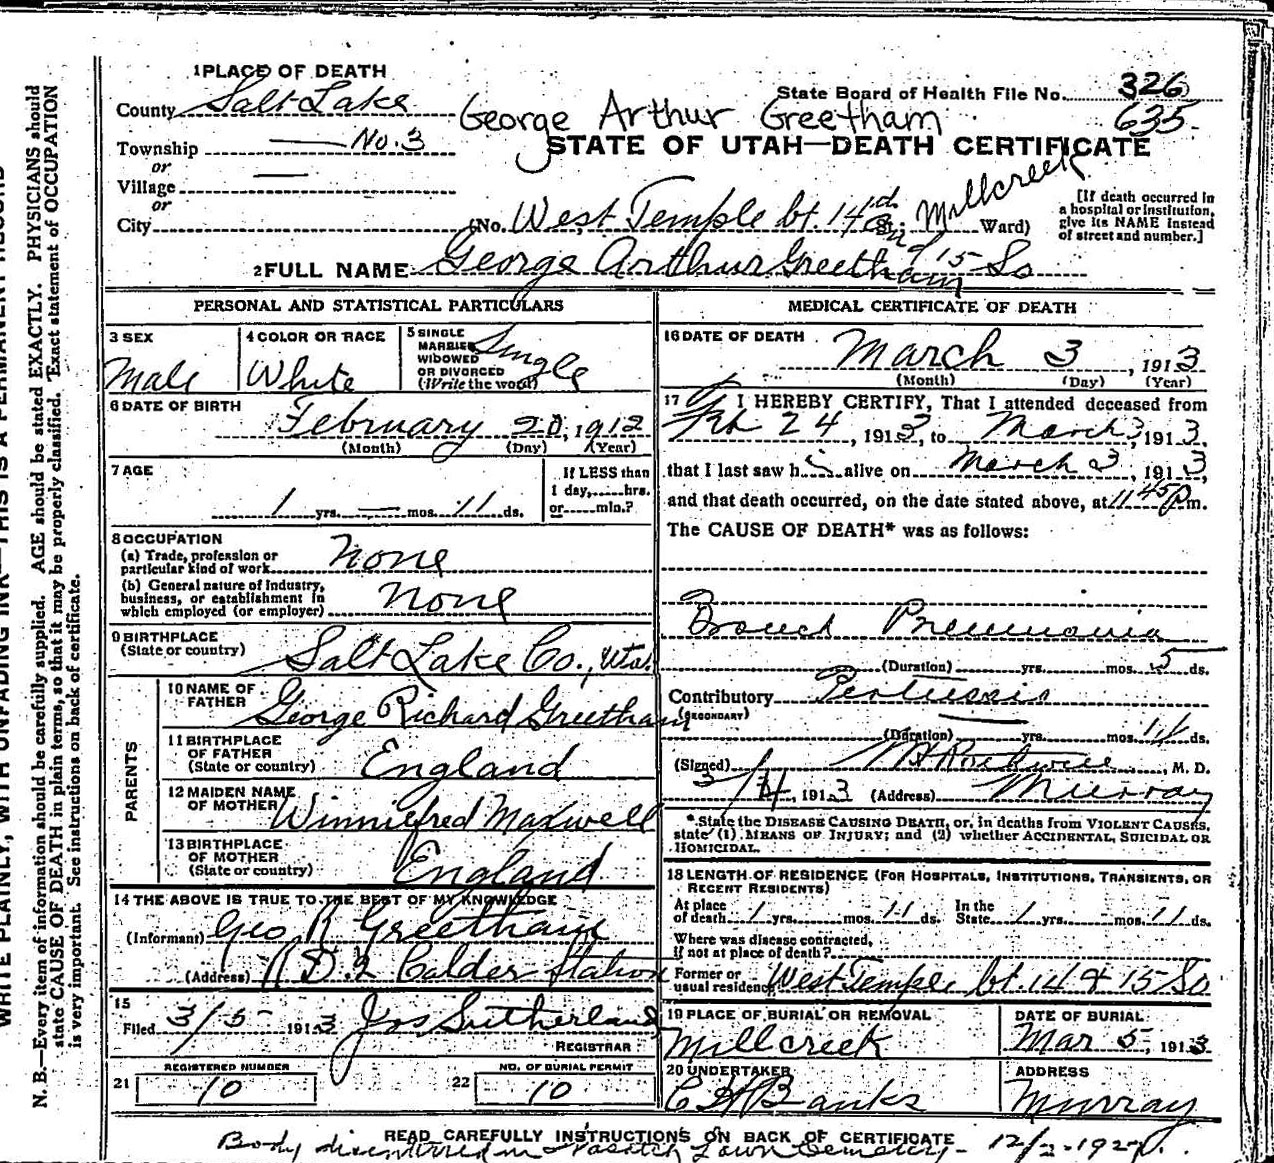 1 PLACE OF DEATH
County Salt Lake
State Board of Health File No. 326
635
George Arthur Greetham
Township — No. 3
STATE OF UTAH—DEATH CERTIFICATE
or
Village —
or
City
(No. West Temple bt. 14 and 15 So St; Millcreek Ward)
[If death occurred in a hospital or institution, give its NAME instead of street and number.]
2 FULL NAME George Arthur Greetham
PERSONAL AND STATISTICAL PARTICULARS
3 SEX
Male
4 COLOR OR RACE
White
5 SINGLE
MARRIED
WIDOWED
OR DIVORCED
(Write the word)
Single
6 DATE OF BIRTH
February 20, 1912
(Month) (Day) (Year)
7 AGE
1 yrs. — mos. 11 ds.
If LESS than
1 day, hrs.
or min.?
8 OCCUPATION
(a) Trade, profession or
particular kind of work None
(b) General nature of industry,
business, or establishment in
which employed (or employer) None
9 BIRTHPLACE
(State or country)
Salt Lake Co., Utah
PARENTS
10 NAME OF
FATHER
George Richard Greetham
11 BIRTHPLACE
OF FATHER
(State or country)
England
12 MAIDEN NAME
OF MOTHER
Winniefred Maxwell
13 BIRTHPLACE
OF MOTHER
(State or country)
England
14 THE ABOVE IS TRUE TO THE BEST OF MY KNOWLEDGE
(Informant) Geo R Greetham
(Address) R D. 2 Calder Station
15
Filed 3/5 1913 Jos Sutherland
REGISTRAR
REGISTERED NUMBER
21 10
NO. OF BURIAL PERMIT
22 10
MEDICAL CERTIFICATE OF DEATH
16 DATE OF DEATH
March 3, 1913
(Month) (Day) (Year)
17 I HEREBY CERTIFY, That I attended deceased from
Feb 24, 1913, to March 3, 1913,
that I last saw h alive on March 3, 1913,
and that death occurred, on the date stated above, at 11 45 P m.
The CAUSE OF DEATH* was as follows:
Bronch Pneumonia
(Duration) yrs. mos. 5 ds.
Contributory Pertussis
(SECONDARY)
(Duration) yrs. mos. 14 ds.
(Signed) M. D.
3/4, 1913 (Address) Murray
*State the DISEASE CAUSING DEATH, or, in deaths from VIOLENT CAUSES,
state (1) MEANS OF INJURY; and (2) whether ACCIDENTAL, SUICIDAL OR
HOMICIDAL.
18 LENGTH OF RESIDENCE (FOR HOSPITALS, INSTITUTIONS, TRANSIENTS, OR
RECENT RESIDENTS)
At place
of death 1 yrs. mos. 11 ds.
In the
State 1 yrs. — mos. 11 ds.
Where was disease contracted,
if not at place of death?
Former or
usual residence West Temple bt. 14 & 15 So
19 PLACE OF BURIAL OR REMOVAL
Millcreek
DATE OF BURIAL
Mar 5, 1913
20 UNDERTAKER
C H Banks
ADDRESS
Murray
READ CAREFULLY INSTRUCTIONS ON BACK OF CERTIFICATE
Body disinterred in Wasatch Lawn Cemetery - 12/2-1927.
WRITE PLAINLY, WITH UNFADING INK—THIS IS A PERMANENT RECORD
N. B.—Every item of information should be carefully supplied. AGE should be stated EXACTLY. PHYSICIANS should
state CAUSE OF DEATH in plain terms, so that it may be properly classified. Exact statement of OCCUPATION
is very important. See instructions on back of certificate.